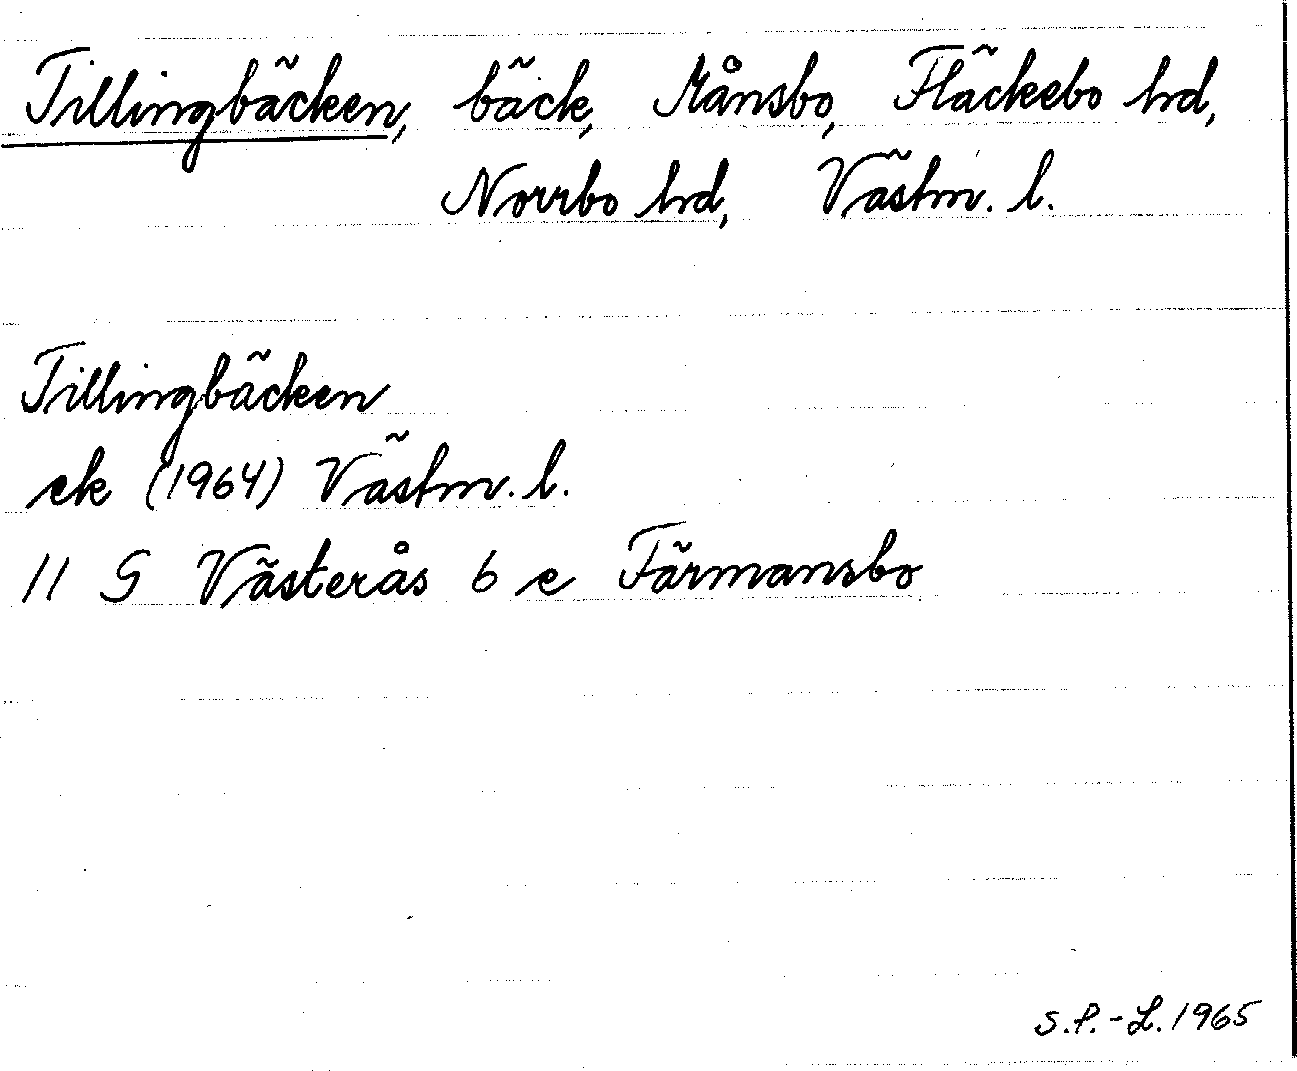 Tillingbäcken, bäck, Månsbo, Fläckebo hd,
Norrbo hd, Västm. l.
Tillingbäcken
ek (1964) Västm. l.
11 G Västerås 6 e Färmansbo
S.P.-L. 1965